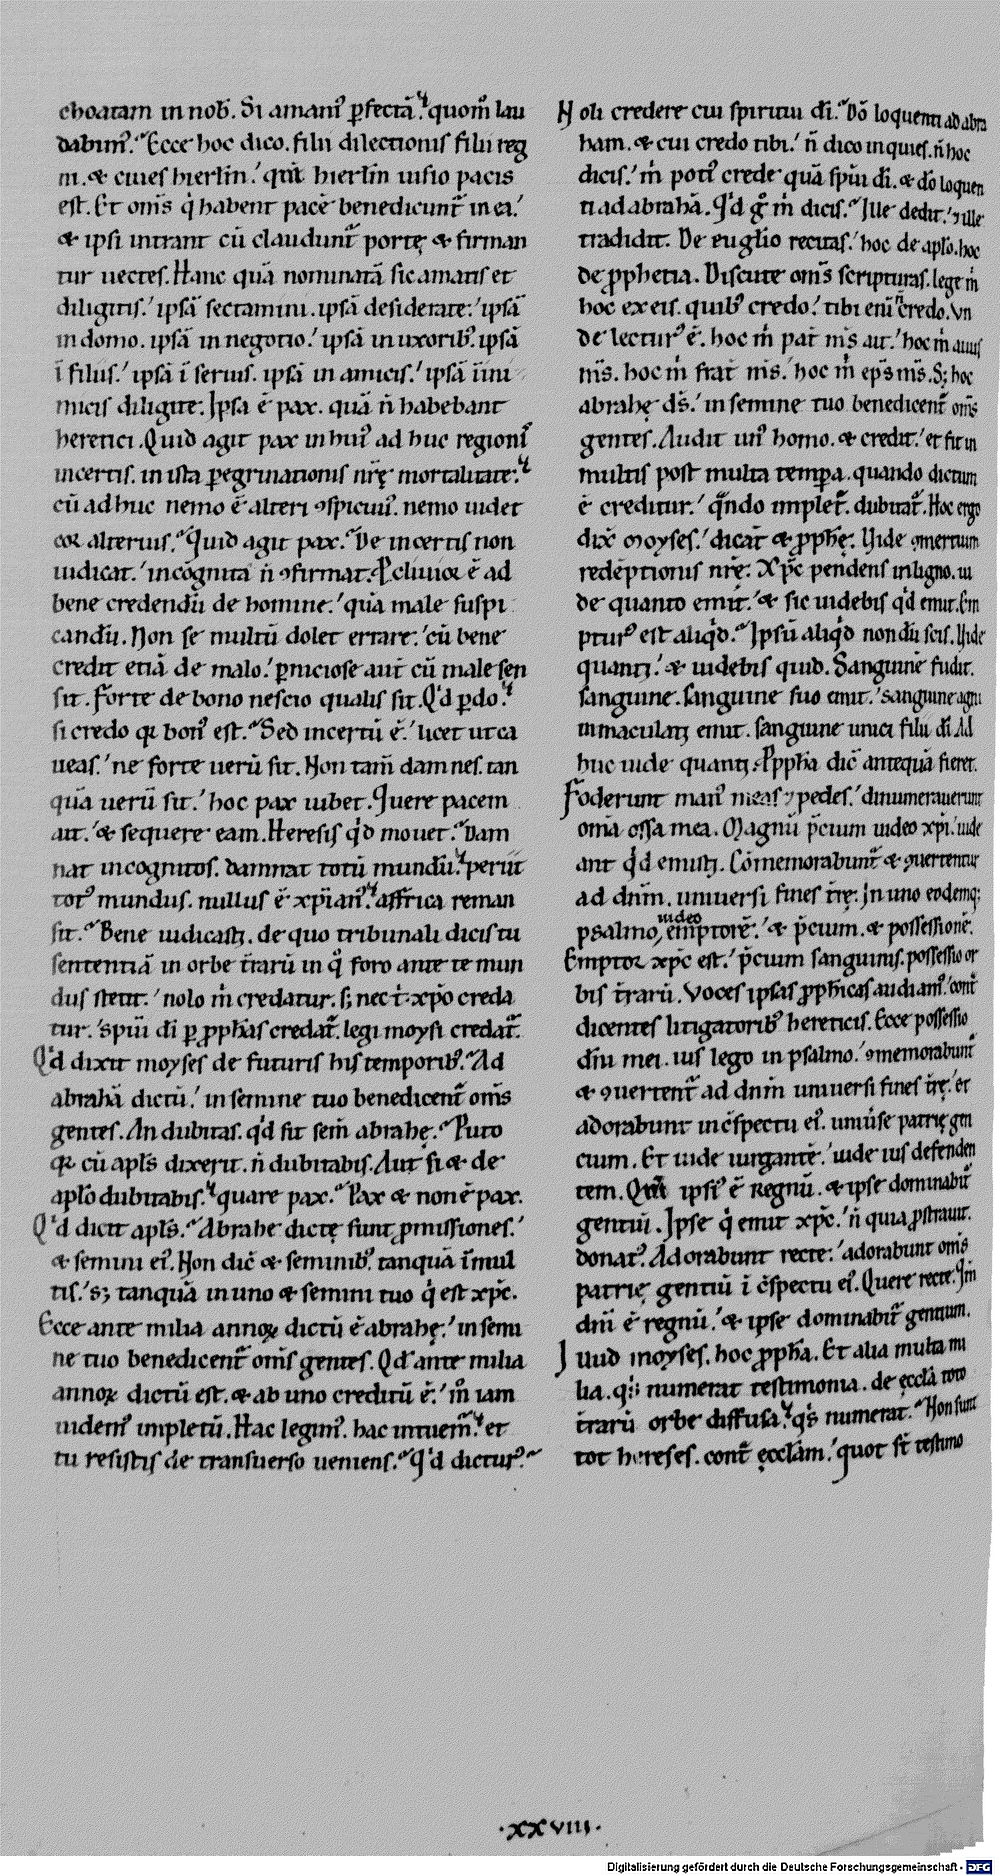 choatam in nob̄. Si amam᷒ ꝑfectā. quom̊ lau
dabim᷒. Ecce hoc dico. filii dilectionis filii reg
ni. & ciues hierl̄m. qm̄ hierl̄m uisio pacis
est. Et om̄s q̇ habent pacē benedicunt᷑ in ea.
& ipsi intrant cū claudunt᷑ portę & firman
tur uectes. Hanc quā nominatā sic amatis et
diligitis. ipsā sectamini. ipsā desiderate. ipsā
in domo. ipsā in negotio. ipsā in uxorib᷒. ipsā
ī filiis. ipsā ī seruis. ipsā in amicis. ipsā ī ini
micis diligite. Ipsa ē pax. quā n̄ habebant
heretici. Quid agit pax in hui᷒ ad huc regionis
incertis. in ista ꝑegrinationis nr̄ę mortalitate.
cū ad huc nemo ē alteri ꝯspicuus. nemo uidet
cor alterius. Quid agit pax. De incertis non
iudicat. incognita n̄ ꝯfirmat. Ꝓcliuior ē ad
bene credendū de homine. quā male suspi
candū. Non se multū dolet errare. cū bene
credit etiā de malo. ꝑniciose aut̄ cū male sen
sit. forte de bono nescio qualis sit. Qd̓ ꝑdo.
si credo qr bon᷒ est. Sed incertū ē. licet ut ca
ueas. ne forte uerū sit. Non tam̄ damnes. tan
quā uerū sit. hoc pax iubet. Quere pacem
ait. & sequere eam. Heresis qd̓ mouet. Dam
nat incognitos. damnat totū mundū. periit
tot᷒ mundus. nullus ē xp̄ian᷒. affrica reman
sit. Bene iudicasti. de quo tribunali dicis tu
sententiā in orbe t̄rarū in q̊ foro ante te mun
dus stetit. nolo m̓ credatur. s; nec t̓. xp̄o creda
tur. sp̄ui di ꝑ ꝓph̄as credat᷑. legi moysi credat᷑.
Qd̓ dixit moyses de futuris his temporib᷒. Ad
abrahā dictū. in semine tuo benedicent᷑ om̄s
gentes. An dubitas. qd̓ sit sem̄ abrahę. Puto
qr cū apl̄s dixerit. n̄ dubitabis. Aut si & de
apl̄o dubitabis. quare pax. Pax & non ē pax.
Qd̓ dicit apl̄s. Abrahe dictę sunt ꝓmissiones.
& semini ei᷒. Non dic̄ & seminib᷒. tanquā ī mul
tis. s; tanquā in uno & semini tuo q̇ est xp̄c.
Ecce ante milia annoꝝ dictū ē abrahę. in semi
ne tuo benedicent᷑ om̄s gentes. Qd̓ ante milia
annoꝝ dictū est. & ab uno creditū ē. m̊ iam
uidem᷒ impletū. Hac legim᷒. hac intuem᷑. et
tu resistis de transuerso ueniens. Qd̓ dictur᷒.
Noli credere cui spiritui di. Dō loquenti ad abra
ham. & cui credo tibi. n̄ dico inquies. n̄ hoc
dicis. m̓ poti᷒ crede quā sp̄ui di. & dō loquen
ti ad abrahā. Qd̓ g̊ m̓ dicis. Ille dedit. ⁊ ille
tradidit. De euglio recitas. hoc de apl̄o. hoc
de ꝓphetia. Discute om̄s scripturas. lege m̓
hoc ex eis. quib᷒ credo. tibi eni n̄ credo. Vn
de lectur᷒ ē. hoc m̓ pat̓ m̄s ait. hoc m̓ auus
m̄s. hoc m̓ frat̓ m̄s. hoc m̓ ep̄s m̄s. S; hoc
abrahę ds̄. in semine tuo benedicent᷑ om̄s
gentes. Audit un᷒ homo. & credit. et fit in
multis post multa tempa. quando dictum
ē creditur. qn̄do implet᷑. dubitat᷑. Hoc ergo
dix̄ moyses. dicat & ꝓphę. Uide ꝯmertium
redēptionis nr̄ę. Xp̄c pendens in ligno. ui
de quanto emit. & sic uidebis qd̓ emit. Em
ptur᷒ est aliqd̓. Ipsū aliqd̓ nondū scis. Uide
quanti. & uidebis quid. Sanguine fudit.
sanguine. sanguine suo emit. sanguine agni
inmaculati emit. sanguine unici filii di. Ad
huc uide quanti. Ꝓph̄a dic̄ antequā fieret.
Foderunt man᷒ meas ⁊ pedes. dinumerauerunt
om̄a ossa mea. Magnū p̄cium uideo xp̄i. uide
am̓ qd̓ emisti. Cōmemorabunt᷑ & ꝯuertentur
ad dn̄m. uniuersi fines t̄rę. In uno eodemq;
psalmo, uideo emptorē. & p̄cium. & possessionē.
Emptor xp̄c est. p̄cium sanguinis. possessio or
bis t̄rarū. Voces ipsas ꝓphicas audiam᷒. cont̄
dicentes litigatorib᷒ hereticis. Ecce possessio
dn̄i mei. ius lego in psalmo. ꝯmemorabunt᷑
& ꝯuertent᷑ ad dn̄m uniuersi fines t̄rę. et
adorabunt in c̄spectu ei᷒. uniu̓se patrię gen
tium. Et uide iurgantē. uide ius defenden
tem. Qm̄ ipsi᷒ ē regnū. & ipse dominabit᷑
gentiū. Ipse q̇ emit xp̄c. n̄ quia ꝓstrauit.
donat᷒. Adorabunt recte. adorabunt om̄s
patrię gentiū ī c̄spectu ei᷒. Quere recte. Qm̄
dn̄i ē regnū. & ipse dominabit᷑ gentium.
Illud moyses. hoc ꝓph̄a. Et alia multa mi
lia. qs̓ numerat testimonia. de ęccl̄a toto
t̄rarū orbe diffusa. qs̓ numerat. Non sunt
tot hereses. cont̄ ęccl̄am. quot st̄ testimo
·XXVIII·
Digitalisierung gefördert durch die Deutsche Forschungsgemeinschaft - DFG